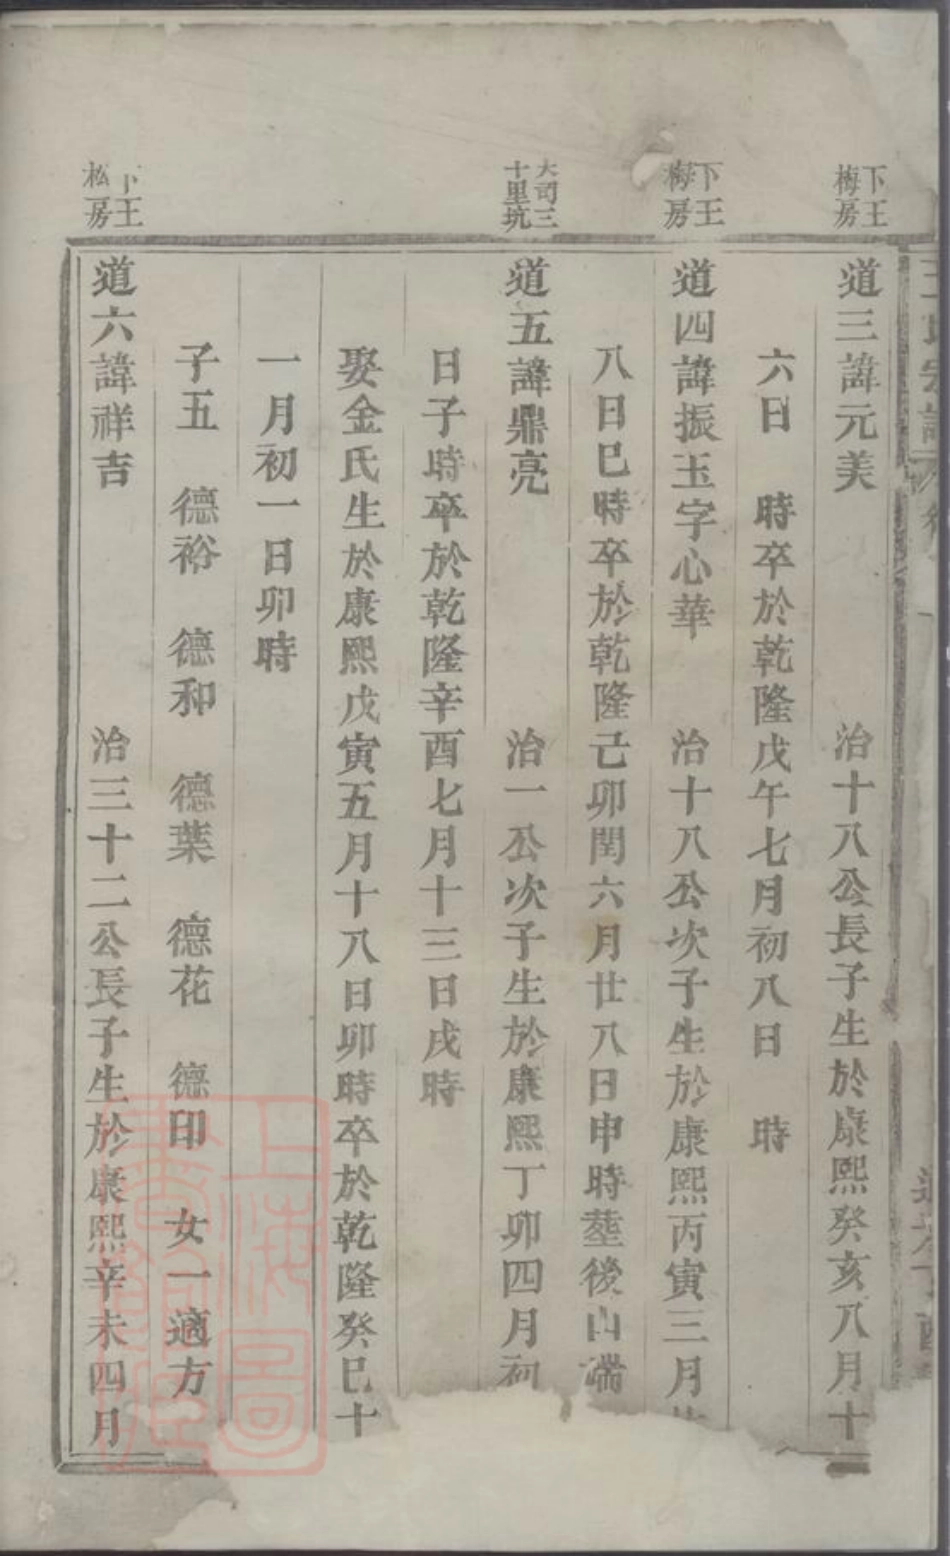 王氏宗譜
下王
梅房
道三諱元美 治十八公長子生於康熙癸亥八月十
六日 時卒於乾隆戊午七月初八日 時
下王
梅房
道四諱振玉字心華 治十八公次子生於康熙丙寅三月
八日巳時卒於乾隆己卯閏六月廿八日申時塟後山湍
大司三
十里坑
道五諱鼎亮 治一公次子生於康熙丁卯四月初
日子時卒於乾隆辛酉七月十三日戌時
娶金氏生於康熙戊寅五月十八日卯時卒於乾隆癸巳十
一月初一日卯時
子五 德裕 德和 德葉 德花 德印 女一適方
下王
松房
道六諱祥吉 治三十二公長子生於康熙辛未四月
上海圖
書館藏